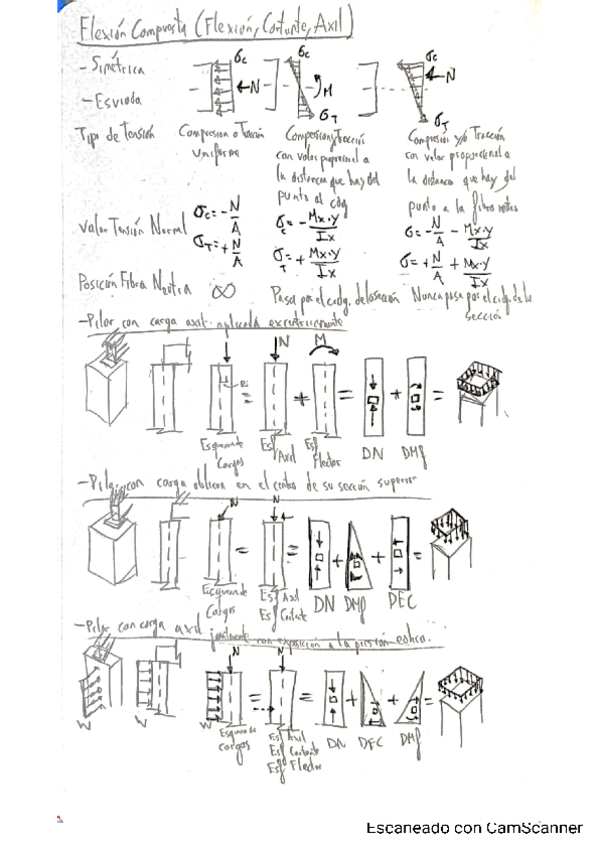 Flexión Compuesta (Flexión, Cortante, Axil)
- Simétrica
- Esviada
σc N σc M σT σc N σT
Tipo de Tensión
Compresión o Tracción uniforme
Compresión y tracción con valor proporcional a la distancia que hay del punto al cdg
Compresión y/o Tracción con valor proporcional a la distancia que hay del punto a la fibra neutra
Valor Tensión Normal
σc = - N/A
σT = + N/A
σc = - Mx·y/Ix
σT = + Mx·y/Ix
σ = - N/A - Mx·y/Ix
σ = + N/A + Mx·y/Ix
Posición Fibra Neutra
∞
Pasa por el cdg. de la sección
Nunca pasa por el cdg. de la sección
- Pilar con carga axil aplicada excéntricamente
N M
= + = + =
Esquema de Cargas
Esf Axil
Esf Flector
DN
DMf
- Pilar con carga oblicua en el centro de su sección superior
N N
= = + + =
Esquema de Cargas
Esf Axil
Esf Cortante
DN DMf DEC
- Pilar con carga axil juntamente con exposición a la presión eólica.
N N
W W W
= = + + =
Esquema de cargas
Esf Axil
Esf Cortante
Esf Flector
DN DEC DMf
Escaneado con CamScanner